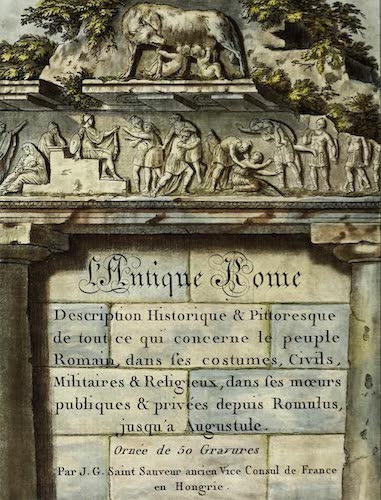 L'Antique Rome
Description Historique & Pittoresque
de tout ce qui concerne le peuple
Romain, dans ſes costumes, Civils,
Militaires & Religieux, dans ſes mœurs
publiques & privées depuis Romulus,
jusqu'a Augustule.
Ornée de 50 Gravures
Par J. G. Saint Sauveur ancien Vice Consul de France
en Hongrie.